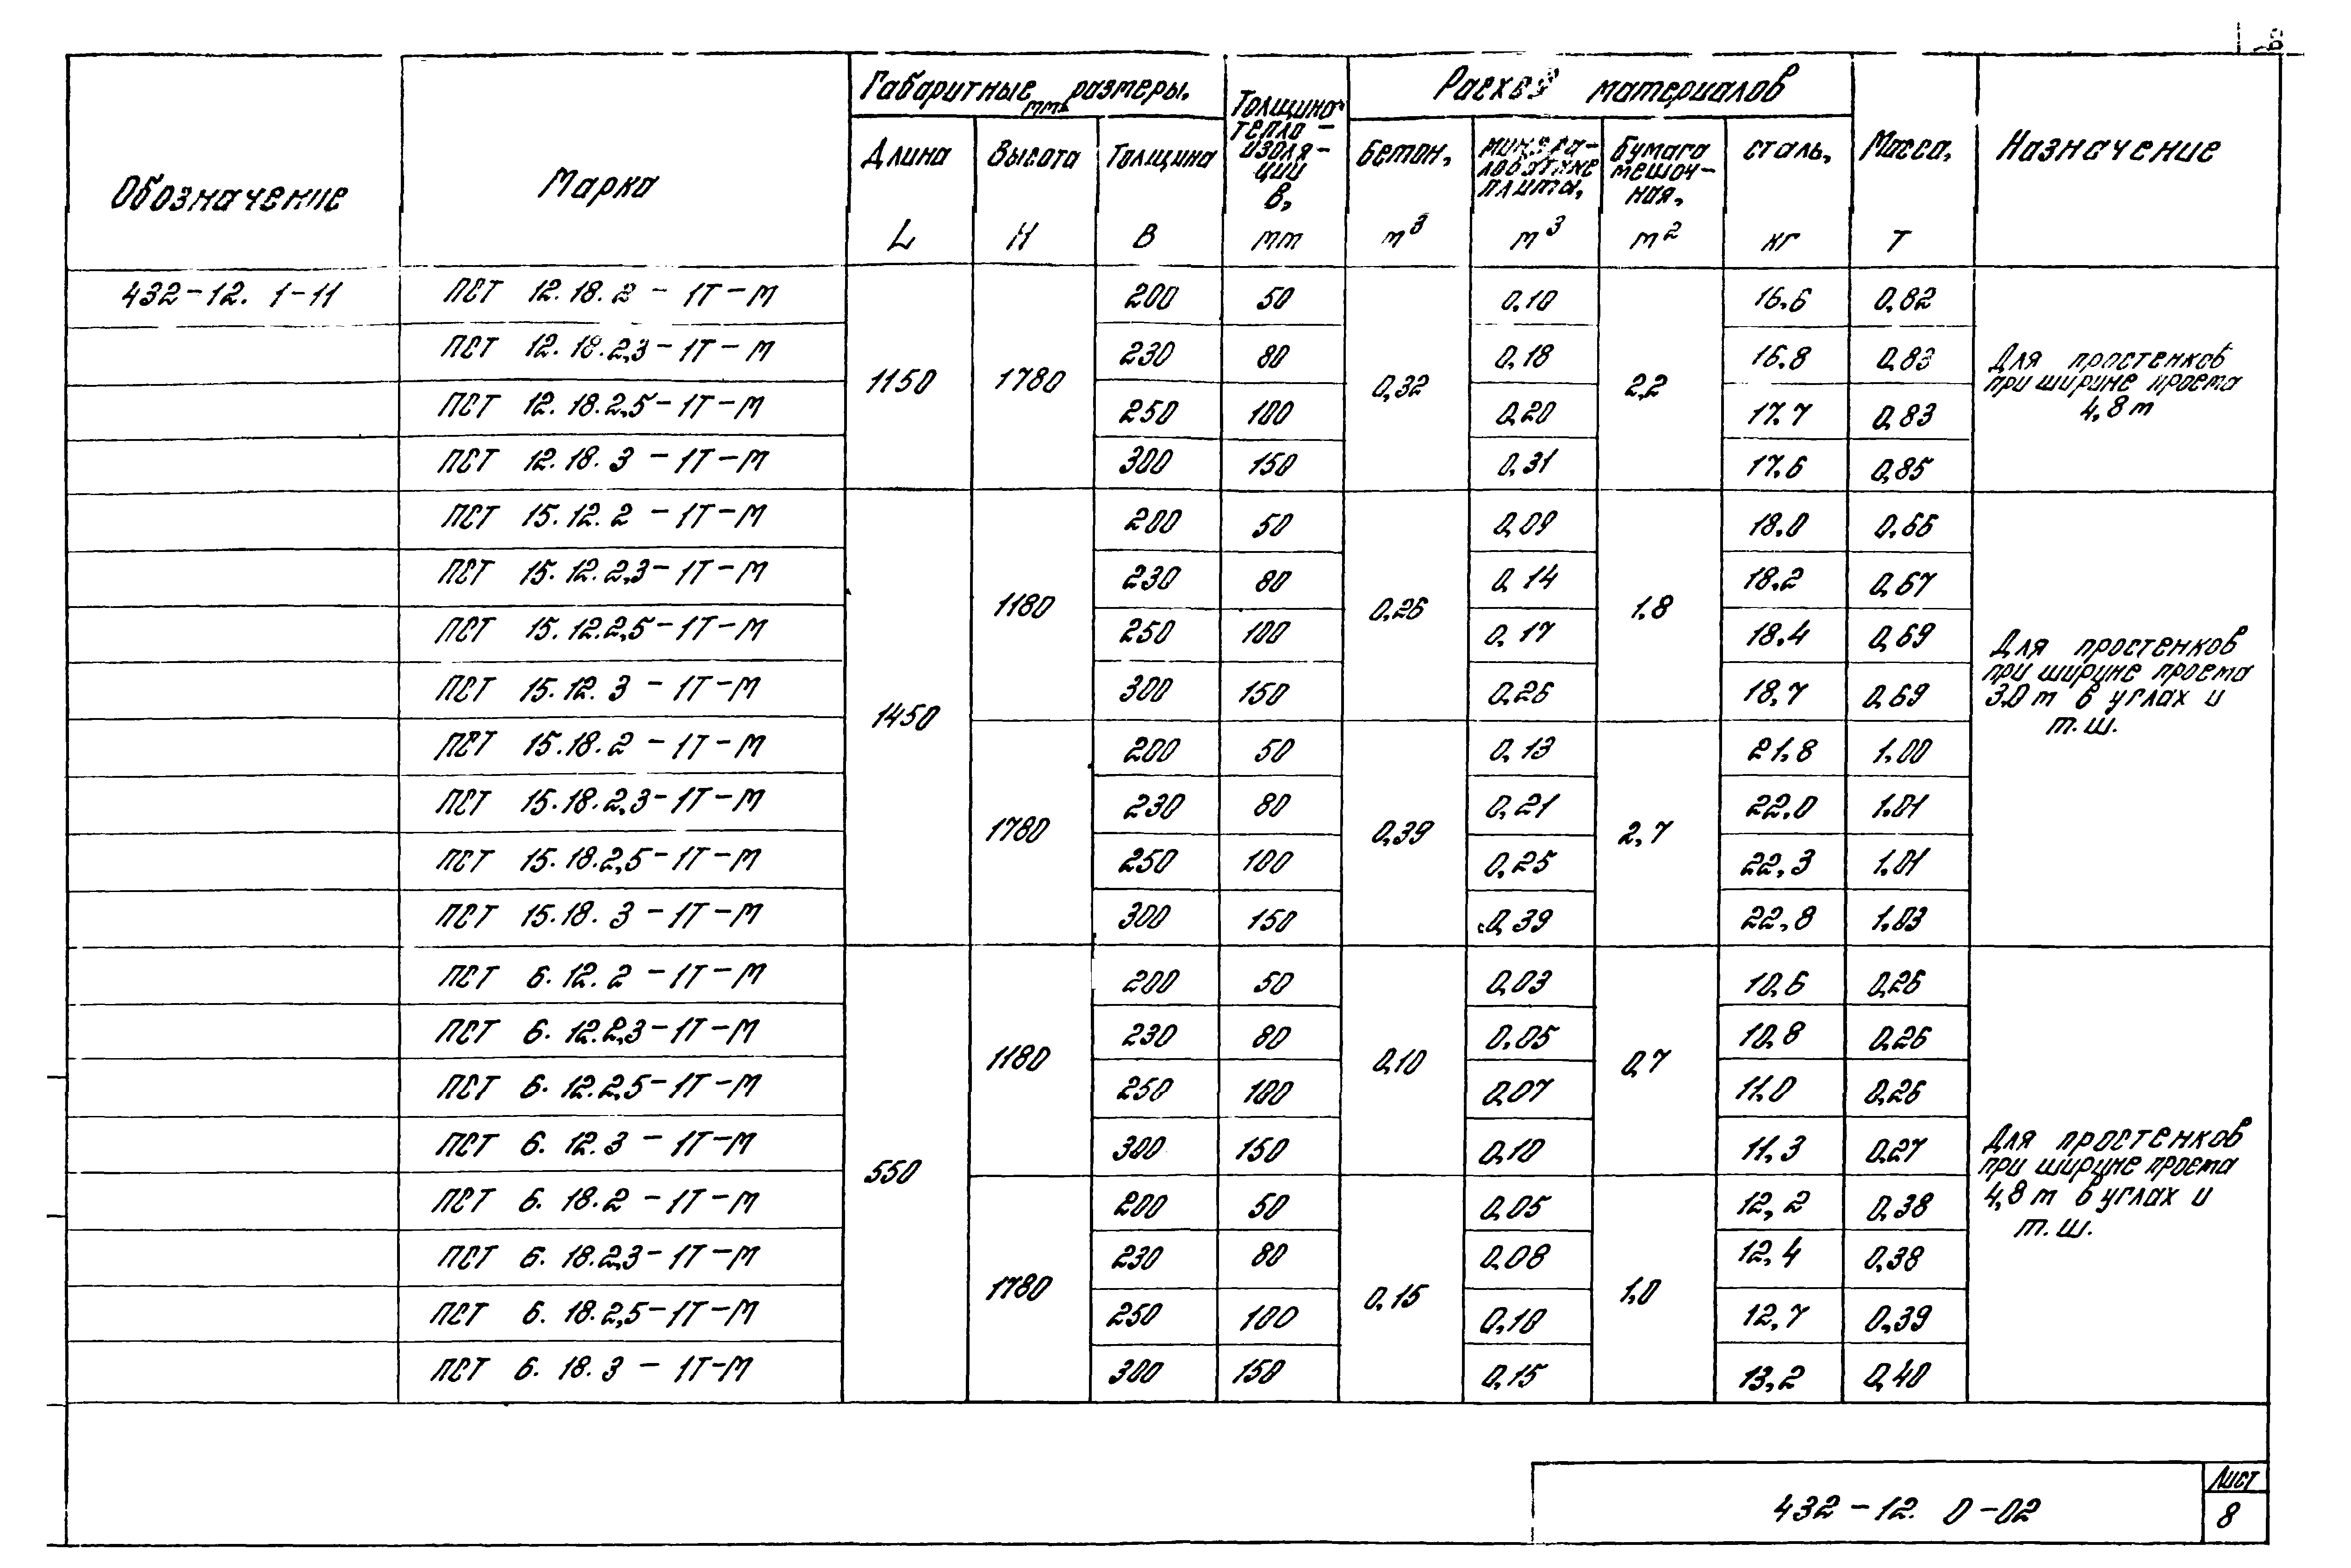 Обозначение Марка Габаритные размеры, мм Толщина теплоизоляции В, мм Расход материалов Масса, Т Назначение
Длина L Высота Н Толщина В Бетон, м³ минераловатные плиты, м³ бумага мешочная, м² сталь, кг
432-12. 1-11 ПСТ 12.18.2 - 1Т-М 1150 1780 200 50 0,32 0,10 2,2 16,6 0,82 Для простенков при ширине проема 4,8 м
ПСТ 12.18.2,3-1Т-М 230 80 0,18 16.8 0,83
ПСТ 12.18.2,5-1Т-М 250 100 0,20 17.7 0,83
ПСТ 12.18.3 -1Т-М 300 150 0,31 17.6 0,85
ПСТ 15.12.2 -1Т-М 1450 1180 200 50 0,26 0,09 1.8 18.0 0,66 Для простенков при ширине проема 3.0 м в углах и т.ш.
ПСТ 15.12.2,3-1Т-М 230 80 0,14 18.2 0,67
ПСТ 15.12.2,5-1Т-М 250 100 0,17 18.4 0,69
ПСТ 15.12.3 -1Т-М 300 150 0,26 18,7 0,69
ПСТ 15.18.2 -1Т-М 1780 200 50 0,39 0,13 2,7 21,8 1,00
ПСТ 15.18.2,3-1Т-М 230 80 0,21 22.0 1.01
ПСТ 15.18.2,5-1Т-М 250 100 0,25 22,3 1.01
ПСТ 15.18.3 -1Т-М 300 150 0,39 22,8 1,03
ПСТ 6.12.2 -1Т-М 550 1180 200 50 0,10 0,03 0,7 10,6 0,26 Для простенков при ширине проема 4,8 м в углах и т.ш.
ПСТ 6.12.2,3-1Т-М 230 80 0,05 10,8 0,26
ПСТ 6.12.2,5-1Т-М 250 100 0,07 11.0 0,26
ПСТ 6.12.3 -1Т-М 300 150 0,10 11,3 0,27
ПСТ 6.18.2 -1Т-М 1780 200 50 0,15 0,05 1,0 12,2 0,38
ПСТ 6.18.2,3-1Т-М 230 80 0,08 12,4 0,38
ПСТ 6.18.2,5-1Т-М 250 100 0,10 12,7 0,39
ПСТ 6.18.3 - 1Т-М 300 150 0,15 13,2 0,40
432-12. 0-02
Лист
8